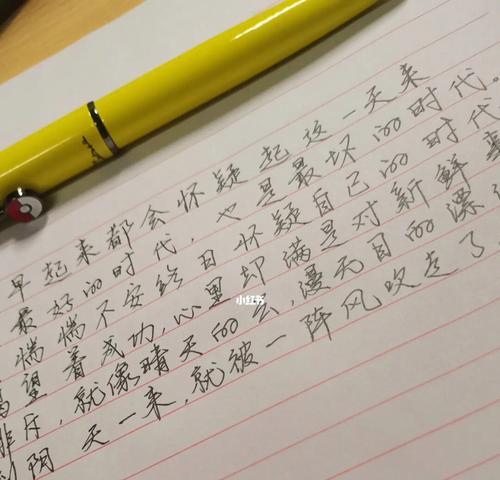 早起来都会怀疑起这一天来
最好的时代，也是最坏的时代。
惴惴不安终日怀疑自己的时代
望着成功，心里却满是对新鲜事
排斥，就像晴天的云，漫无目的漂
阴天一来，就被一阵风吹走了
小红书